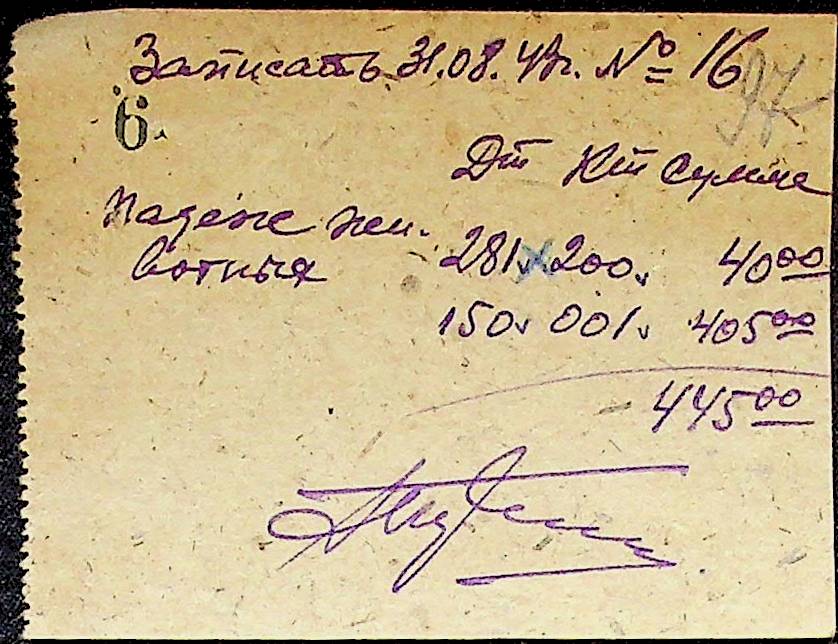 Записать 31.08.49г. № 16
97
6.
Дт Кт Сумма
Падеж жи-
вотных 281. 200. 40 00
150. 001. 405 00
445 00